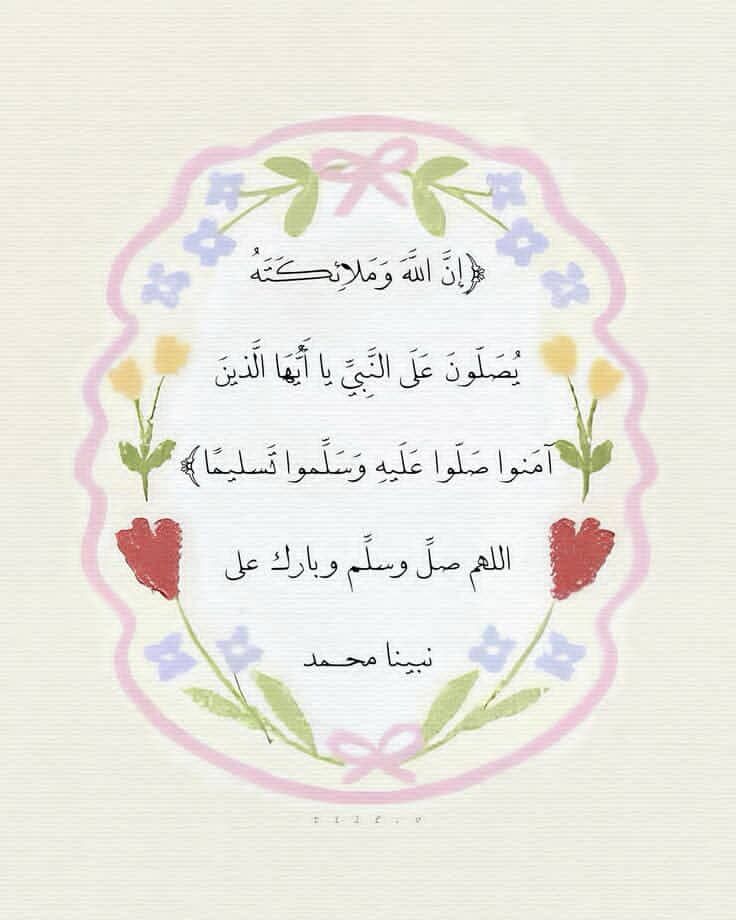 ﴿إنَّ اللَّهَ وَمَلائِكَتَهُ
يُصَلّونَ عَلَى النَّبِيِّ يا أَيُّهَا الَّذينَ
آمَنوا صَلّوا عَلَيهِ وَسَلِّموا تَسليمًا﴾
اللهم صلِّ وسلِّم وبارك على
نبينا محمد